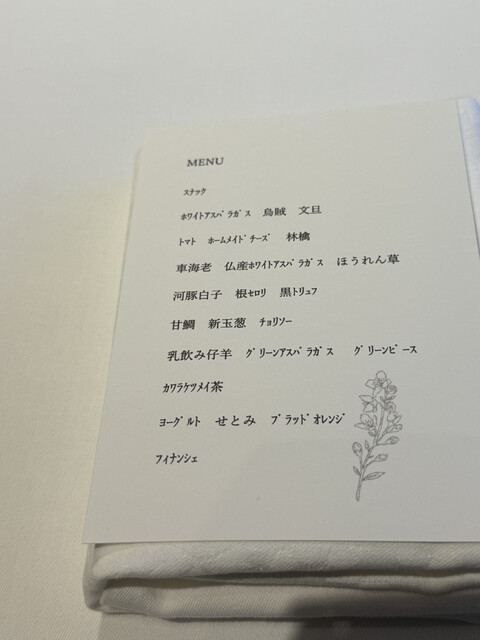 MENU
ｽﾅｯｸ
ﾎﾜｲﾄｱｽﾊﾟﾗｶﾞｽ　烏賊　文旦
ﾄﾏﾄ　ﾎｰﾑﾒｲﾄﾞﾁｰｽﾞ　林檎
車海老　仏産ﾎﾜｲﾄｱｽﾊﾟﾗｶﾞｽ　ほうれん草
河豚白子　根ｾﾛﾘ　黒ﾄﾘｭﾌ
甘鯛　新玉葱　ﾁｮﾘｿﾞｰ
乳飲み仔羊　ｸﾞﾘｰﾝｱｽﾊﾟﾗｶﾞｽ　ｸﾞﾘｰﾝﾋﾟｰｽ
ｶﾜﾗｹﾂﾒｲ茶
ﾖｰｸﾞﾙﾄ　せとみ　ﾌﾞﾗｯﾄﾞｵﾚﾝｼﾞ
ﾌｨﾅﾝｼｪ